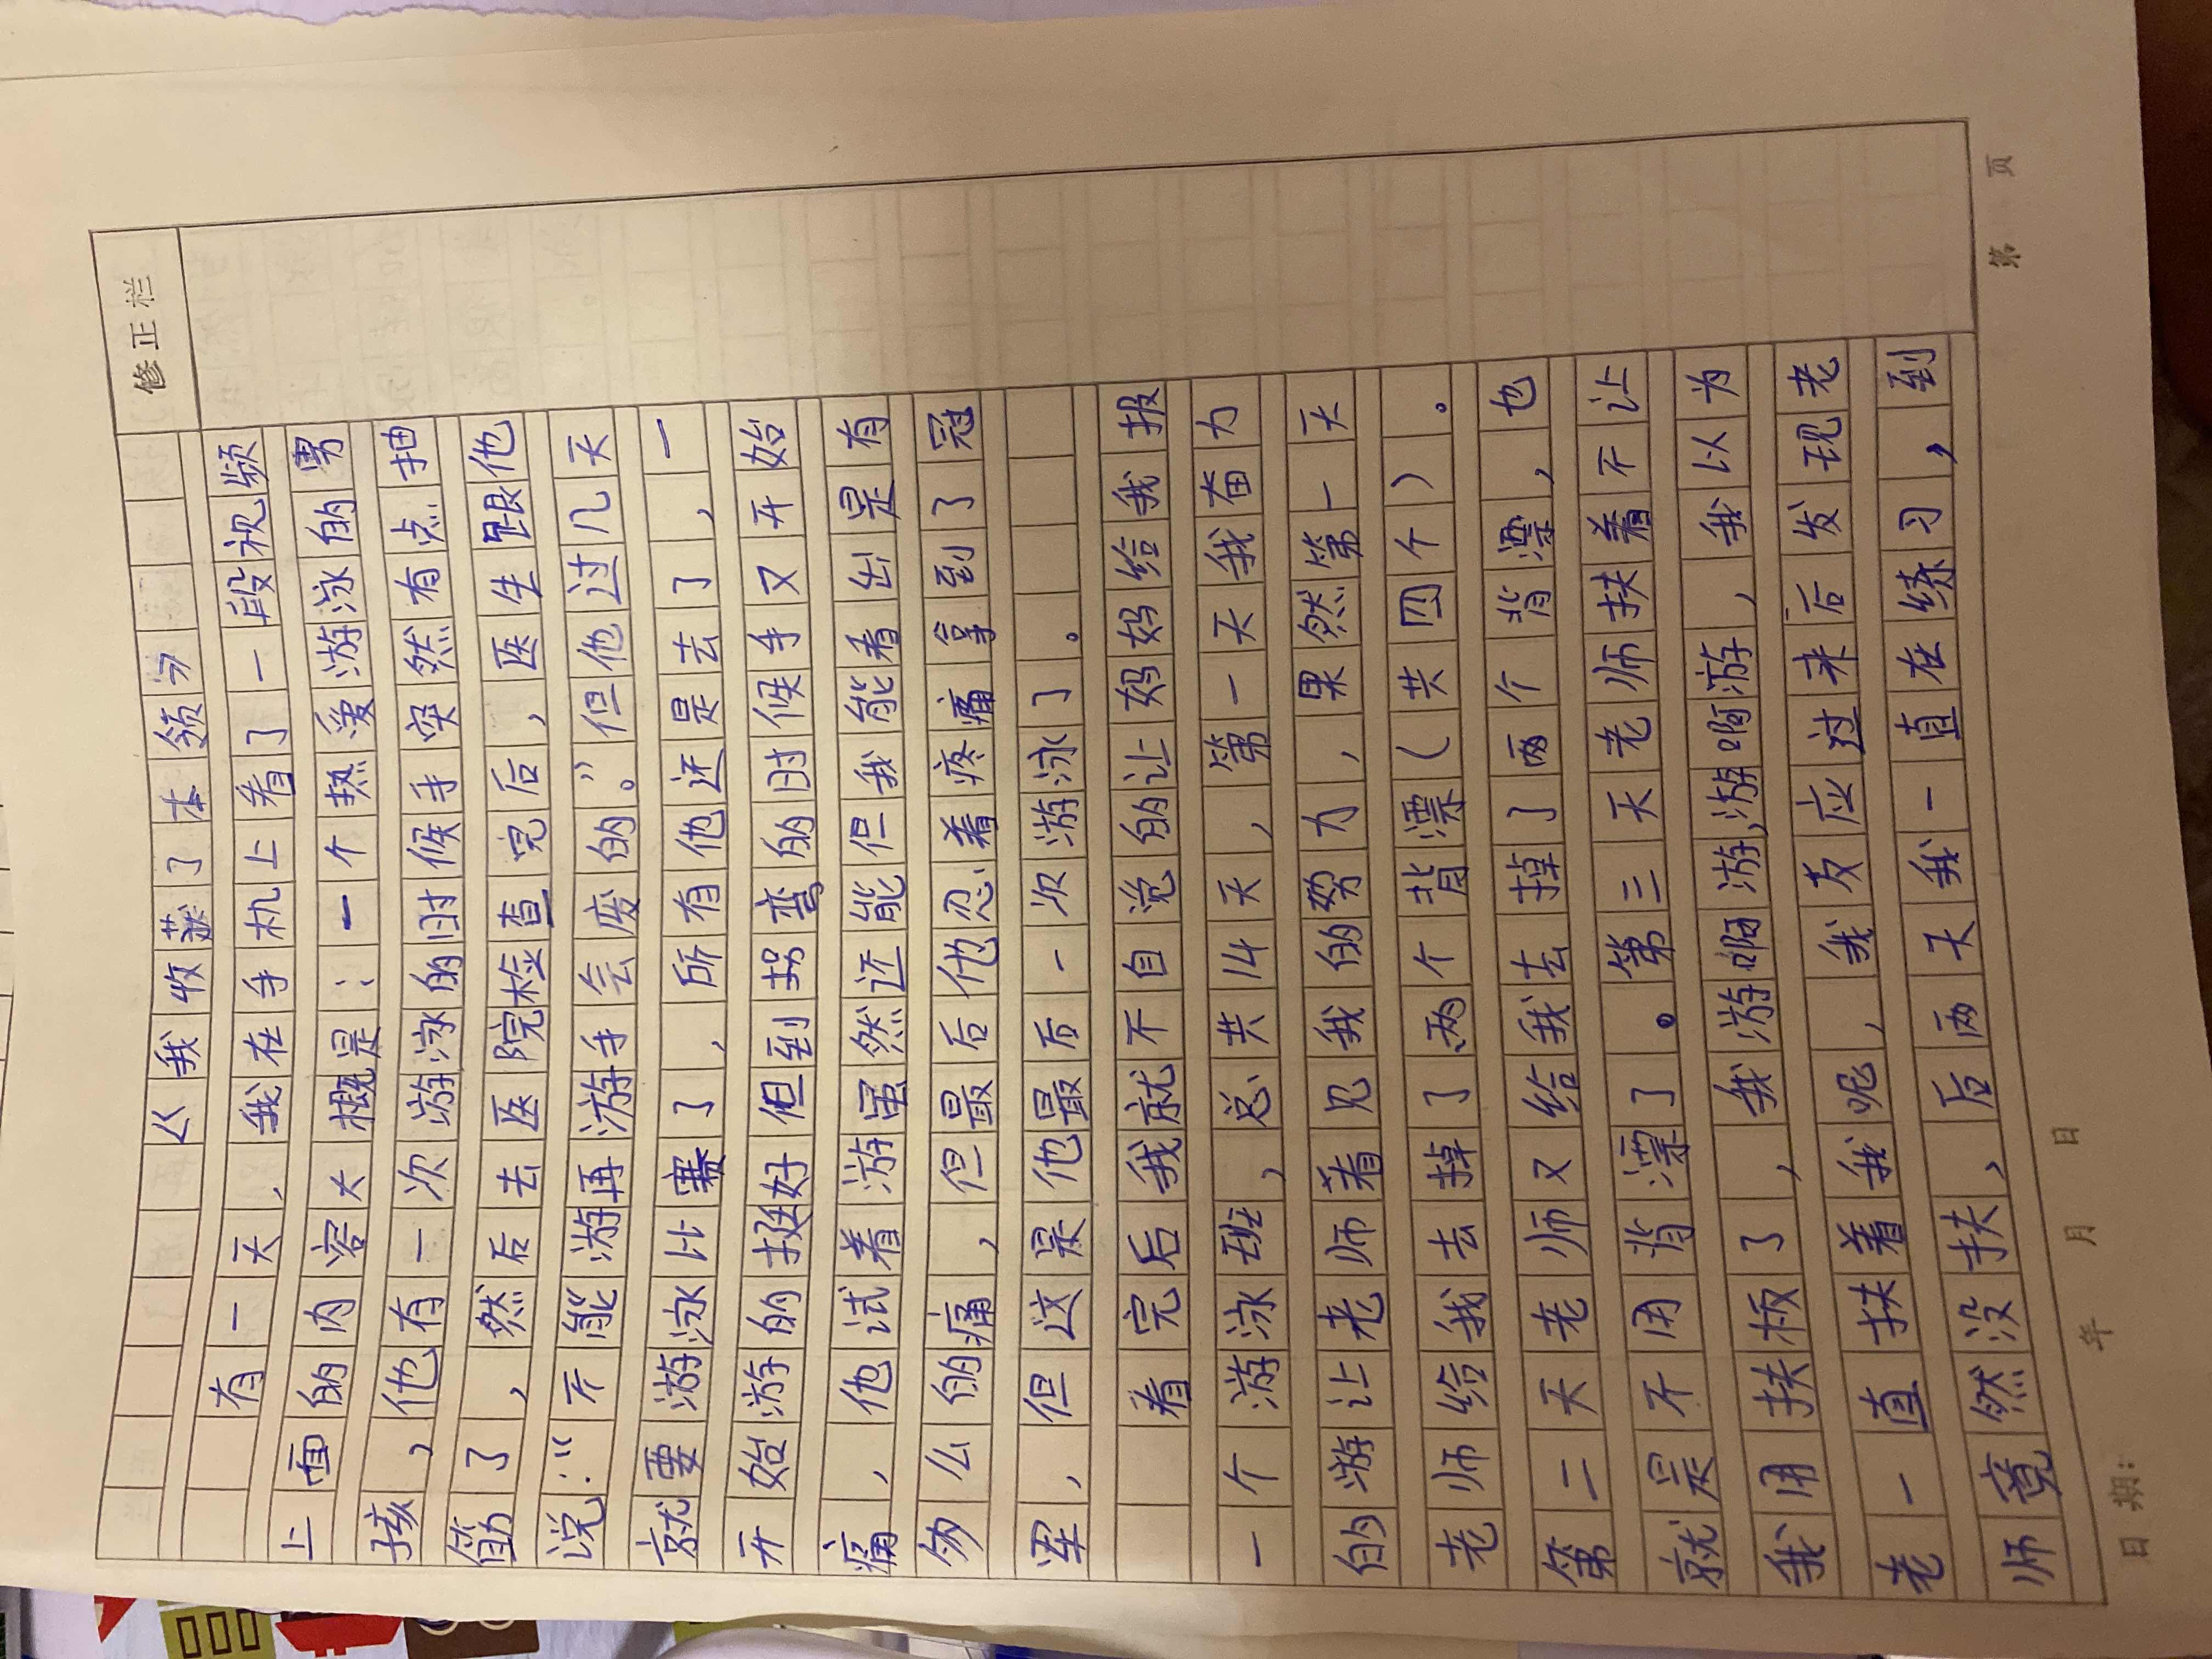 修正栏
《我收获了本领》
有一天，我在手机上看了一段视频
上面的内容大概是：一个热爱游泳的男
孩，他有一次游泳的时候手突然有点抽
筋了，然后去医院检查完后，医生跟他
说：“不能游再游手会废的。”但他过几天
就要游泳比赛了，所有他还是去了，一
开始游的挺好但到拐弯的时候手又开始
痛，他试着游虽然还能但我能看出是有
多么的痛，但最后他忍着疼痛拿到了冠
军，但这是他最后一次游泳了。
看完后我就不自觉的让妈妈给我报
一个游泳班，总共14天，第一天我奋力
的游让老师看见我的努力，果然第一天
老师给我去掉了两个背漂（共四个）。
第二天老师又给我去掉了两个背漂，也
就是不用背漂了。第三天老师扶着不让
我用扶板了，我游啊游，游啊游，我以为
老一直扶着我呢，我反应过来后发现老
师竟然没扶，后两天我一直在练习，到
日期： 年 月 日
第 页